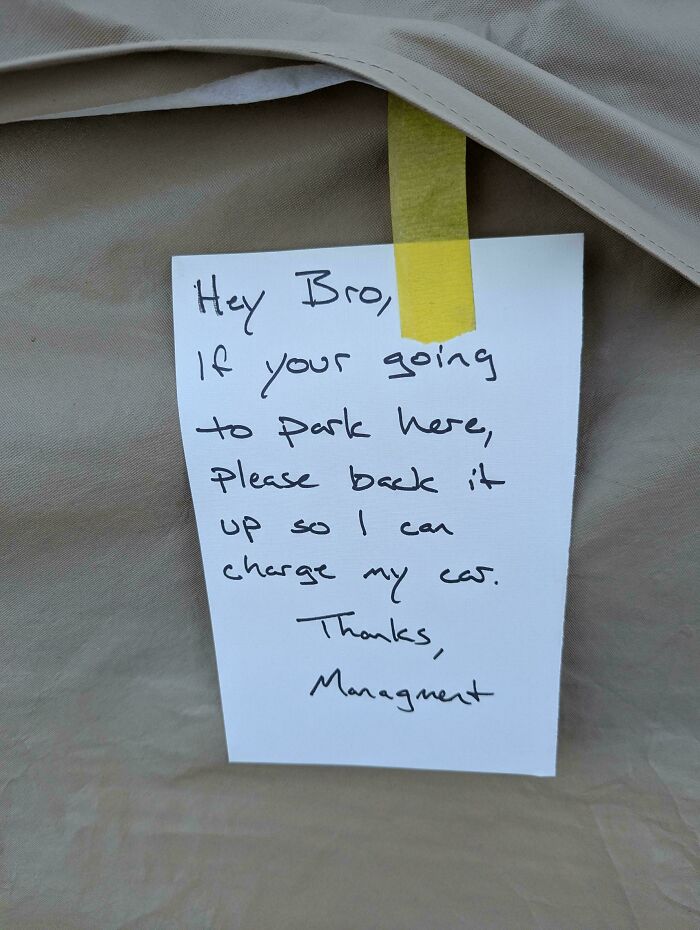 Hey Bro,
If your going
to park here,
please back it
up so I can
charge my car.
Thanks,
Managment